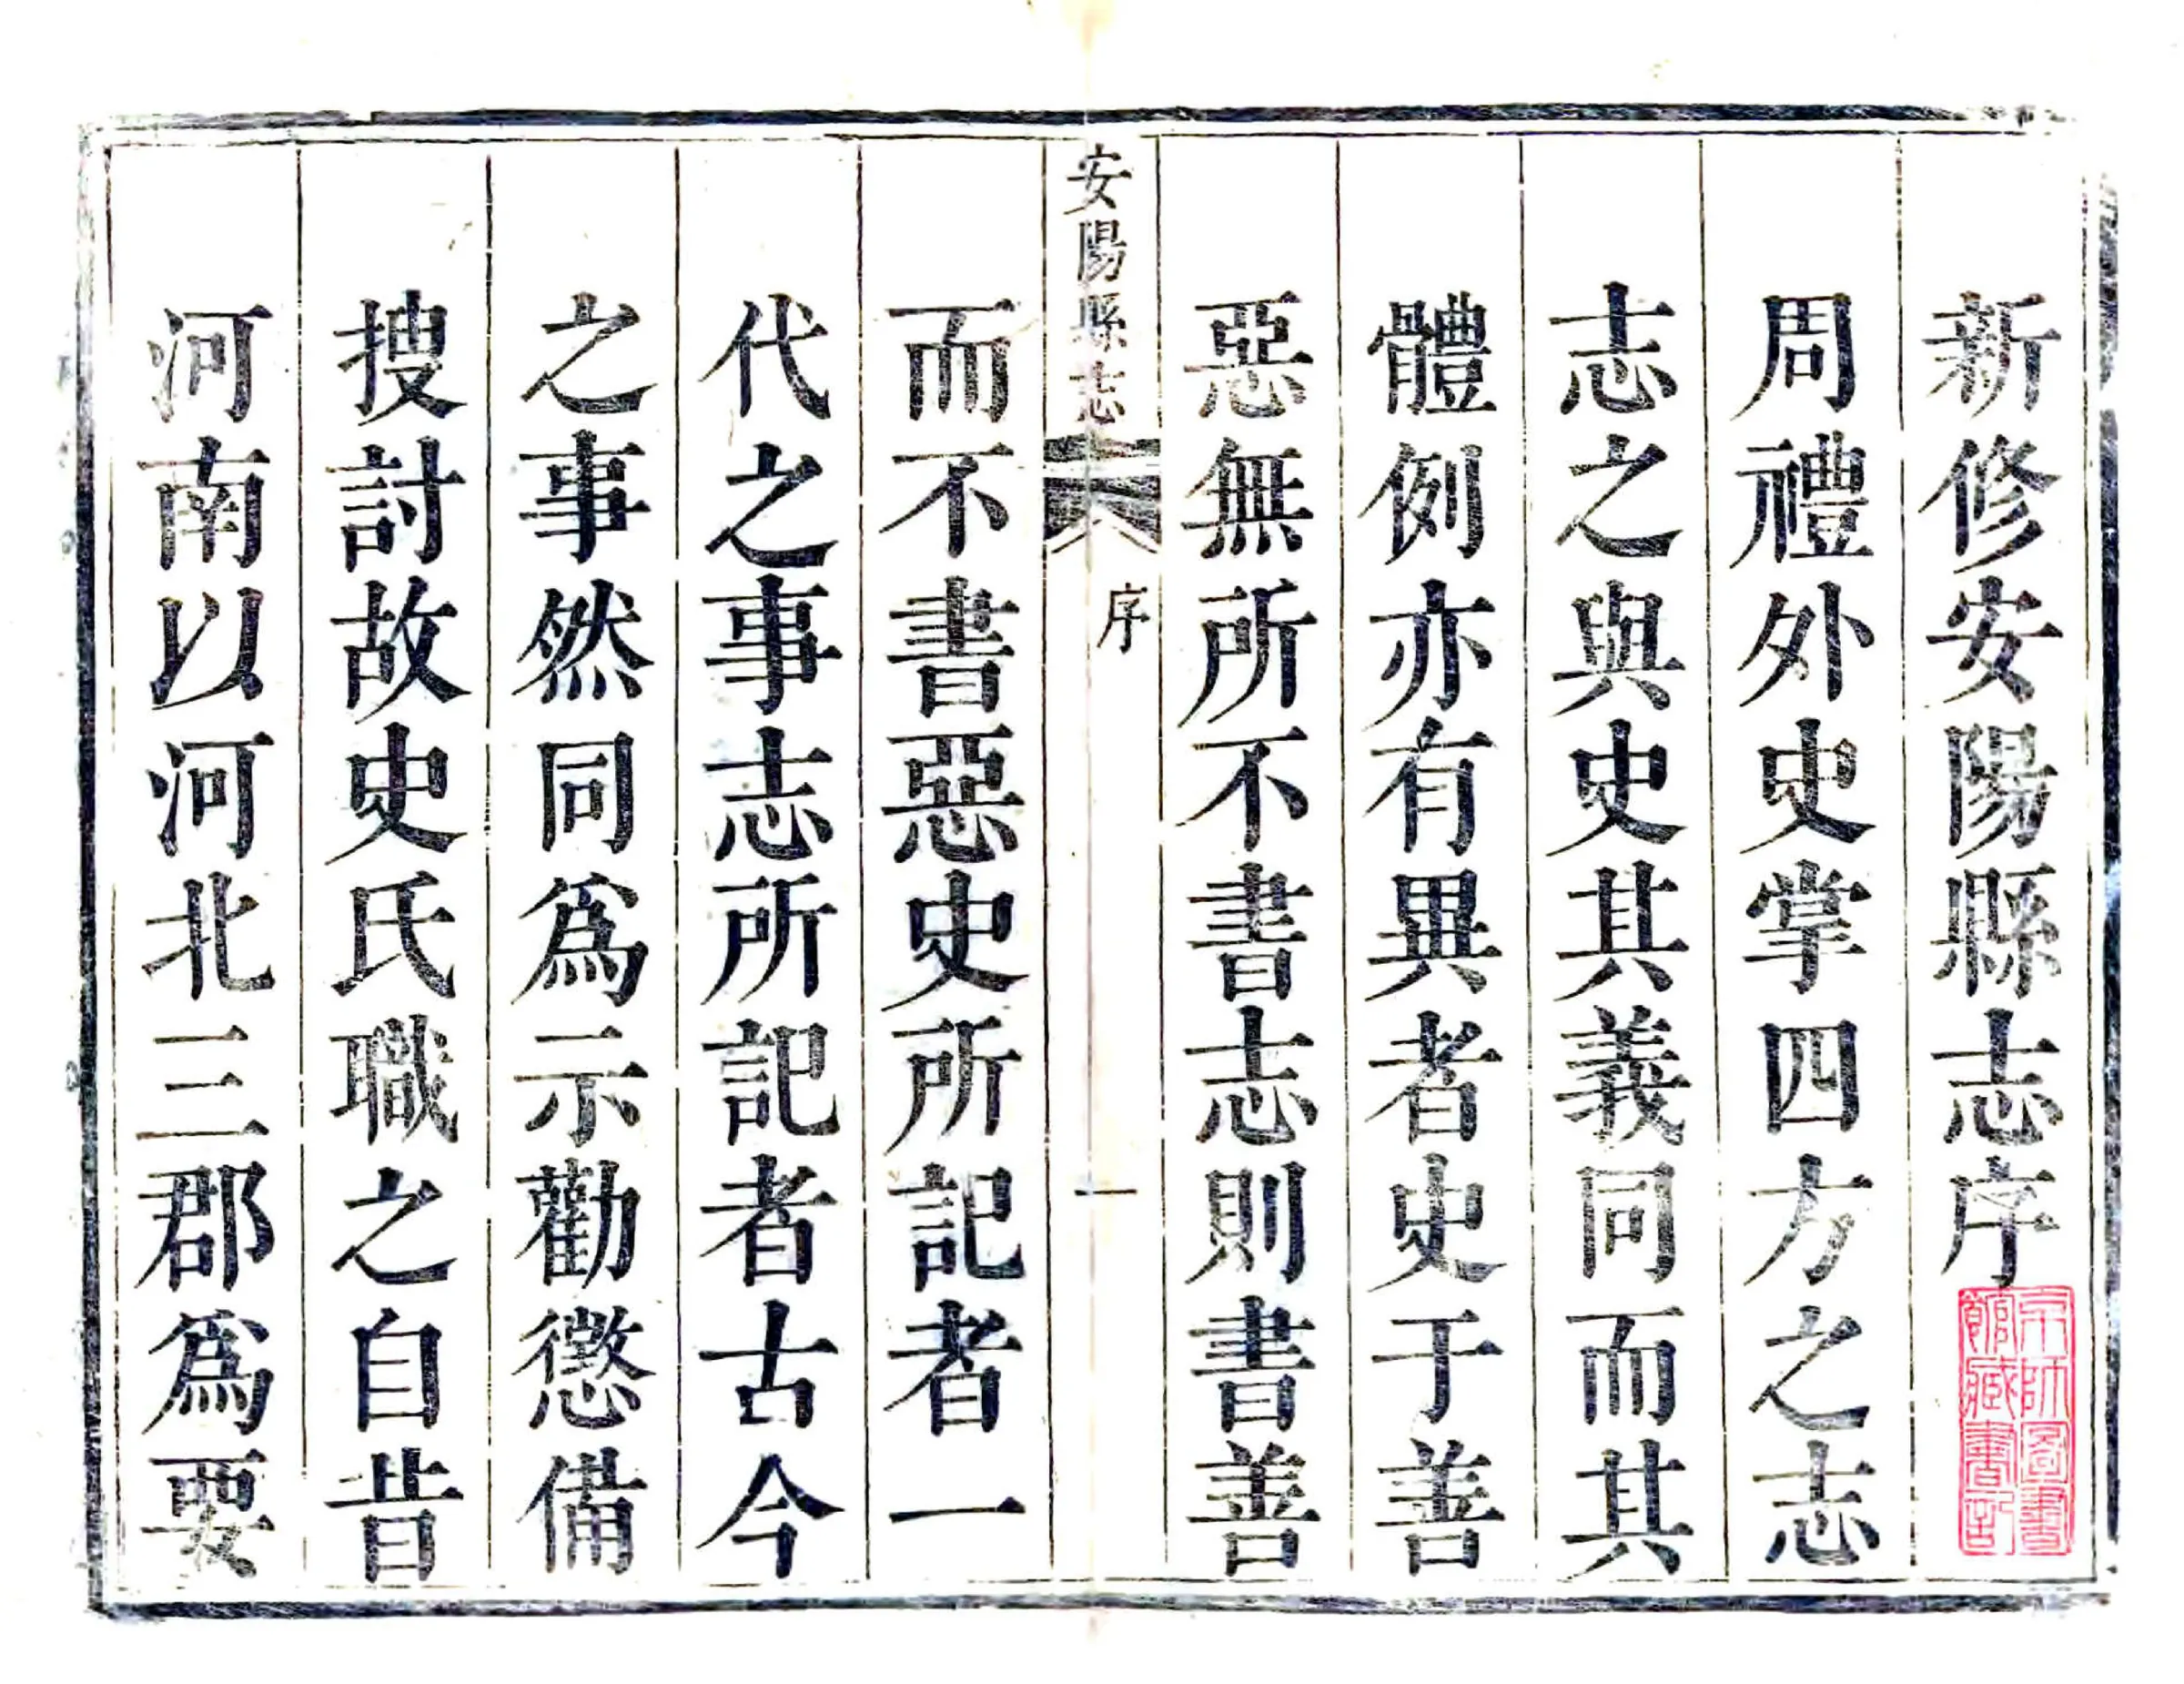 新修安陽縣志序
京師圖書
館藏書記
周禮外史掌四方之志
志之與史其義同而其
體例亦有異者史于善
惡無所不書志則書善
安陽縣志
序
一
而不書惡史所記者一
代之事志所記者古今
之事然同為示勸懲備
搜討故史氏職之自昔
河南以河北三郡為要